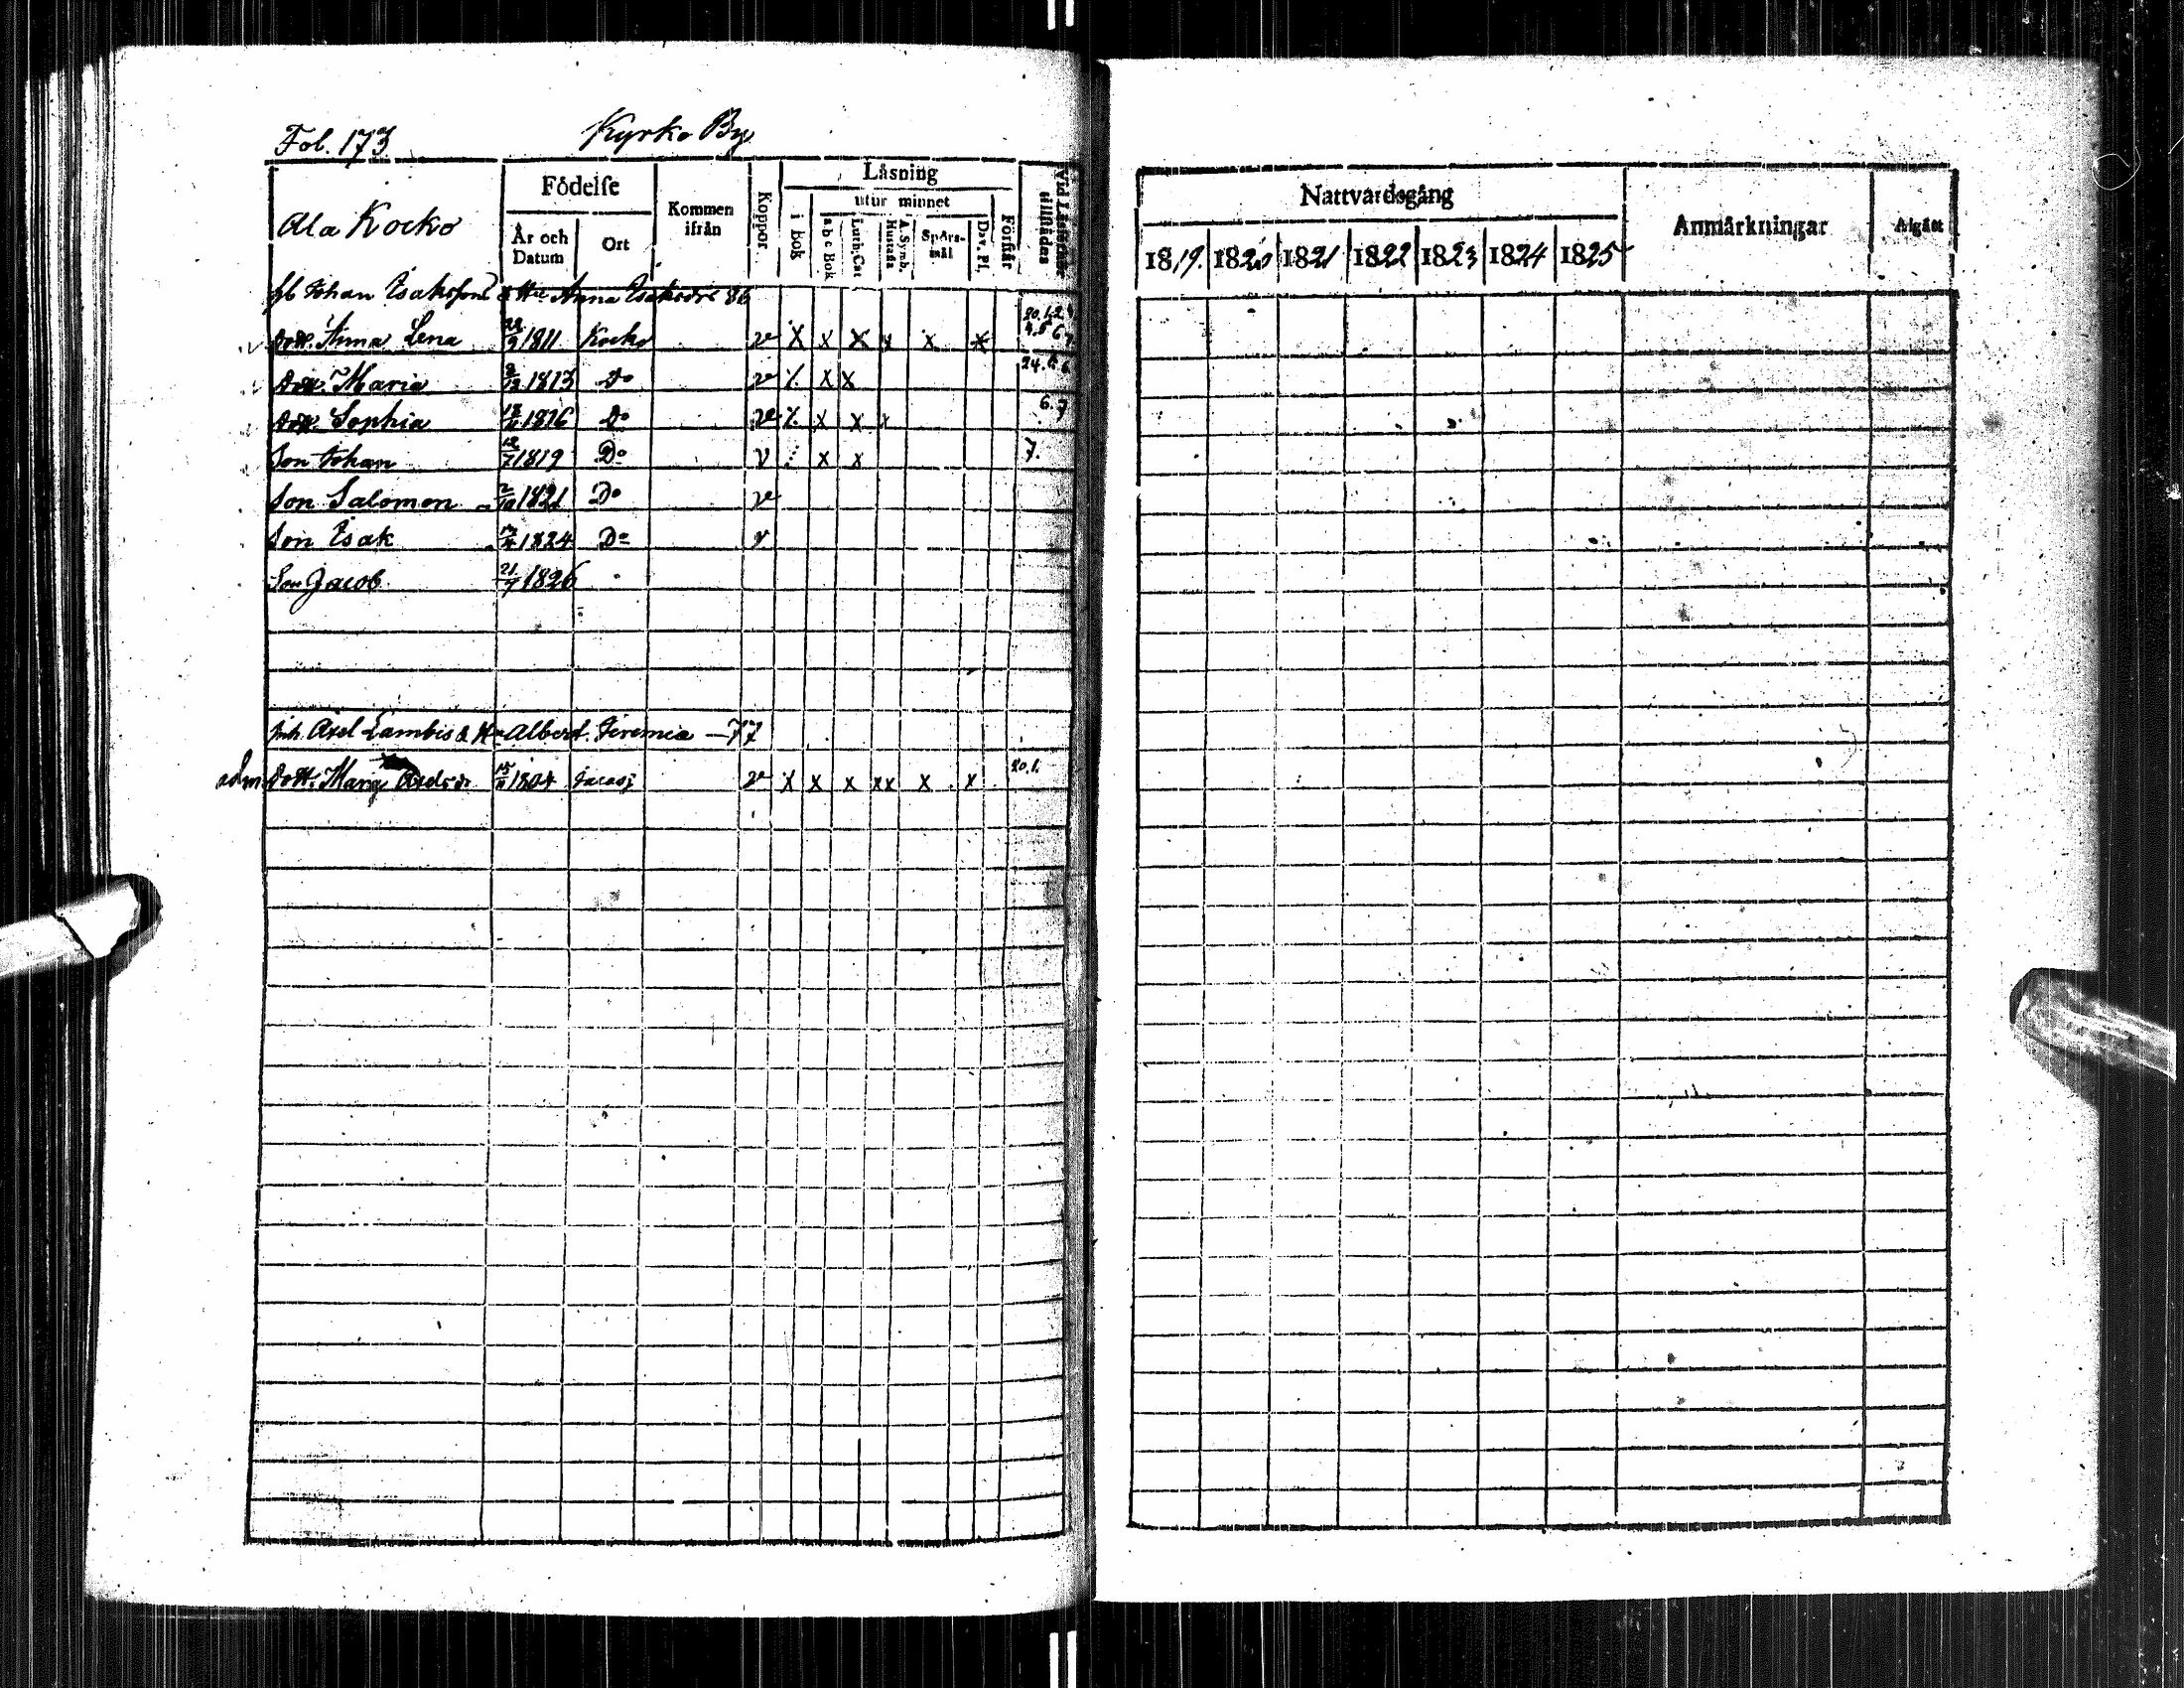 Fol. 173 Kyrko By
Ala Kocko
Födelse
År och Datum
Ort
Kommen ifrån
Koppor
Läsning
i bok
utur minnet
a b c Bok
Luth. Cat
A. Symb. Hustafla
Spörs-mål
Dav. Ps.
Förstår
Vid Läseförhör tillstädes
Johan Isaksson & Hu Anna Isaksdr 86
Dott. Anna Lena 1811 Kocko v x x x x x x 20.1.2. 4.5 6 7
Dott. Maria 1813 Do v x x 24. 6
Dott. Sophia 1816 Do v x x x 6. 7
Son Johan 1819 Do v x x 7.
Son Salomon 2/10 1821 Do v
Son Isak 1824 Do v
Son Jacob 21/7 1826
Inh. Axel Lambis & Hu Albert. Jeremia — 77
adm Dott. Maria 1804 v x x x x x x x 20.1.
Nattvardsgång
1819. 1820 1821 1822 1823 1824 1825
Anmärkningar
Afgått